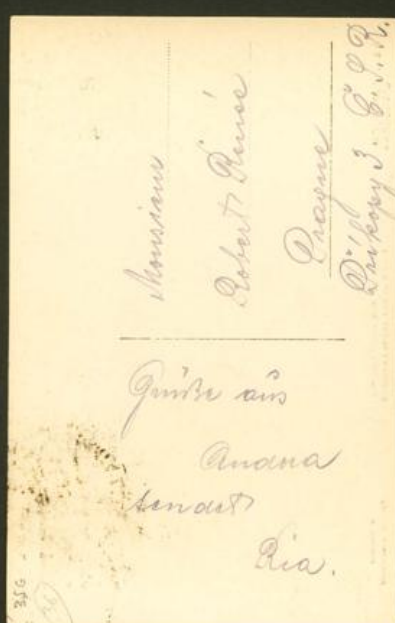 Monsieur
Robert
Prague
Příkopy 3. Č.S.R.
Grüße aus
sendet
Ria.
350